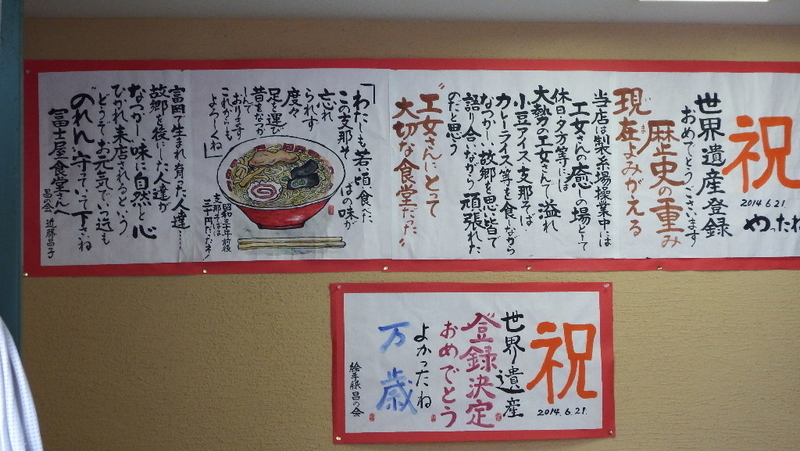 祝
2014.6.21
やったね
世界遺産登録
おめでとうございます
歴史の重み
現在よみがえる
当店は製糸場操業中には
工女さんの癒しの場として
休日夕方等には
大勢の工女さんで溢れ
小豆アイス・支那そば
カレーライス等を食しながら
なつかしい故郷を思い皆で
語り合いながら頑張れた
のだと思う
"工女さんにとって
大切な食堂だった"
「わたしも若い頃食べた
この支那そばの味が
忘れ
られず
度々
足を運び
昔をなつか
しんで
おります
これからも
よろしくね」
昭和三十年前後
支那そばは
三十円だったネ!
富岡で生まれ育った人達……
故郷を後にした人達が
なつかしい味に自然と心
ひかれ来店されるという
どうぞお元気でいつ迄も
"のれん"守っていて下さいね
冨士屋食堂さんへ
昌の会 近藤昌子
祝
2014.6.21.
世界遺産
登録決定
おめでとう
よかったね
万歳
絵手紙昌の会